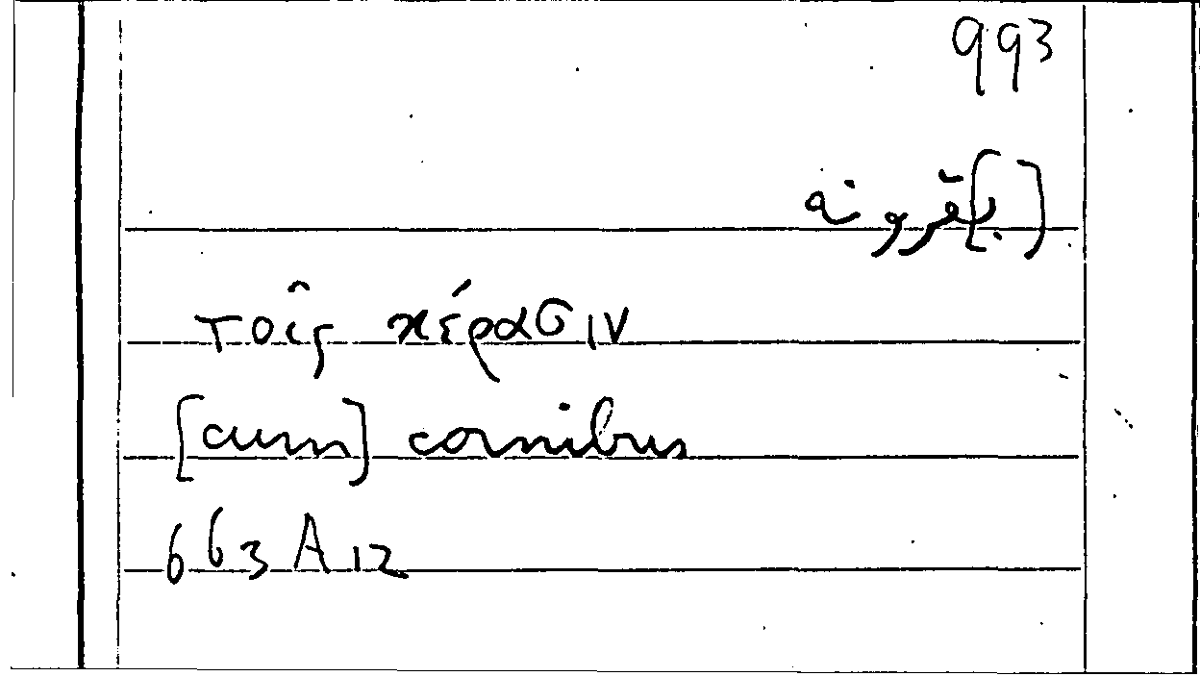 993
[ب]قرونه
τοῖς κέρασιν
[cum] cornibus
663 A 12